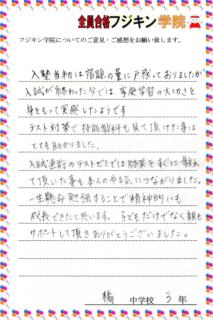 全員合格フジキン学院
フジキン学院についてのご意見・ご感想をお願い致します。
入塾当初は宿題の量に戸惑っておりましたが
入試が終わった今では家庭学習の大切さを
身をもって実感したようです
テスト対策で技能教科も見て頂けた事は
とても助かりました。
入試直前のテストゼミでは結果をすぐに
て頂いた事も本人のやる気につながりました。
一生懸命勉強することで精神的にも
成長できたと思います。子どもだけでなく親も
サポートして頂きありがとうございました。
中学校 3 年